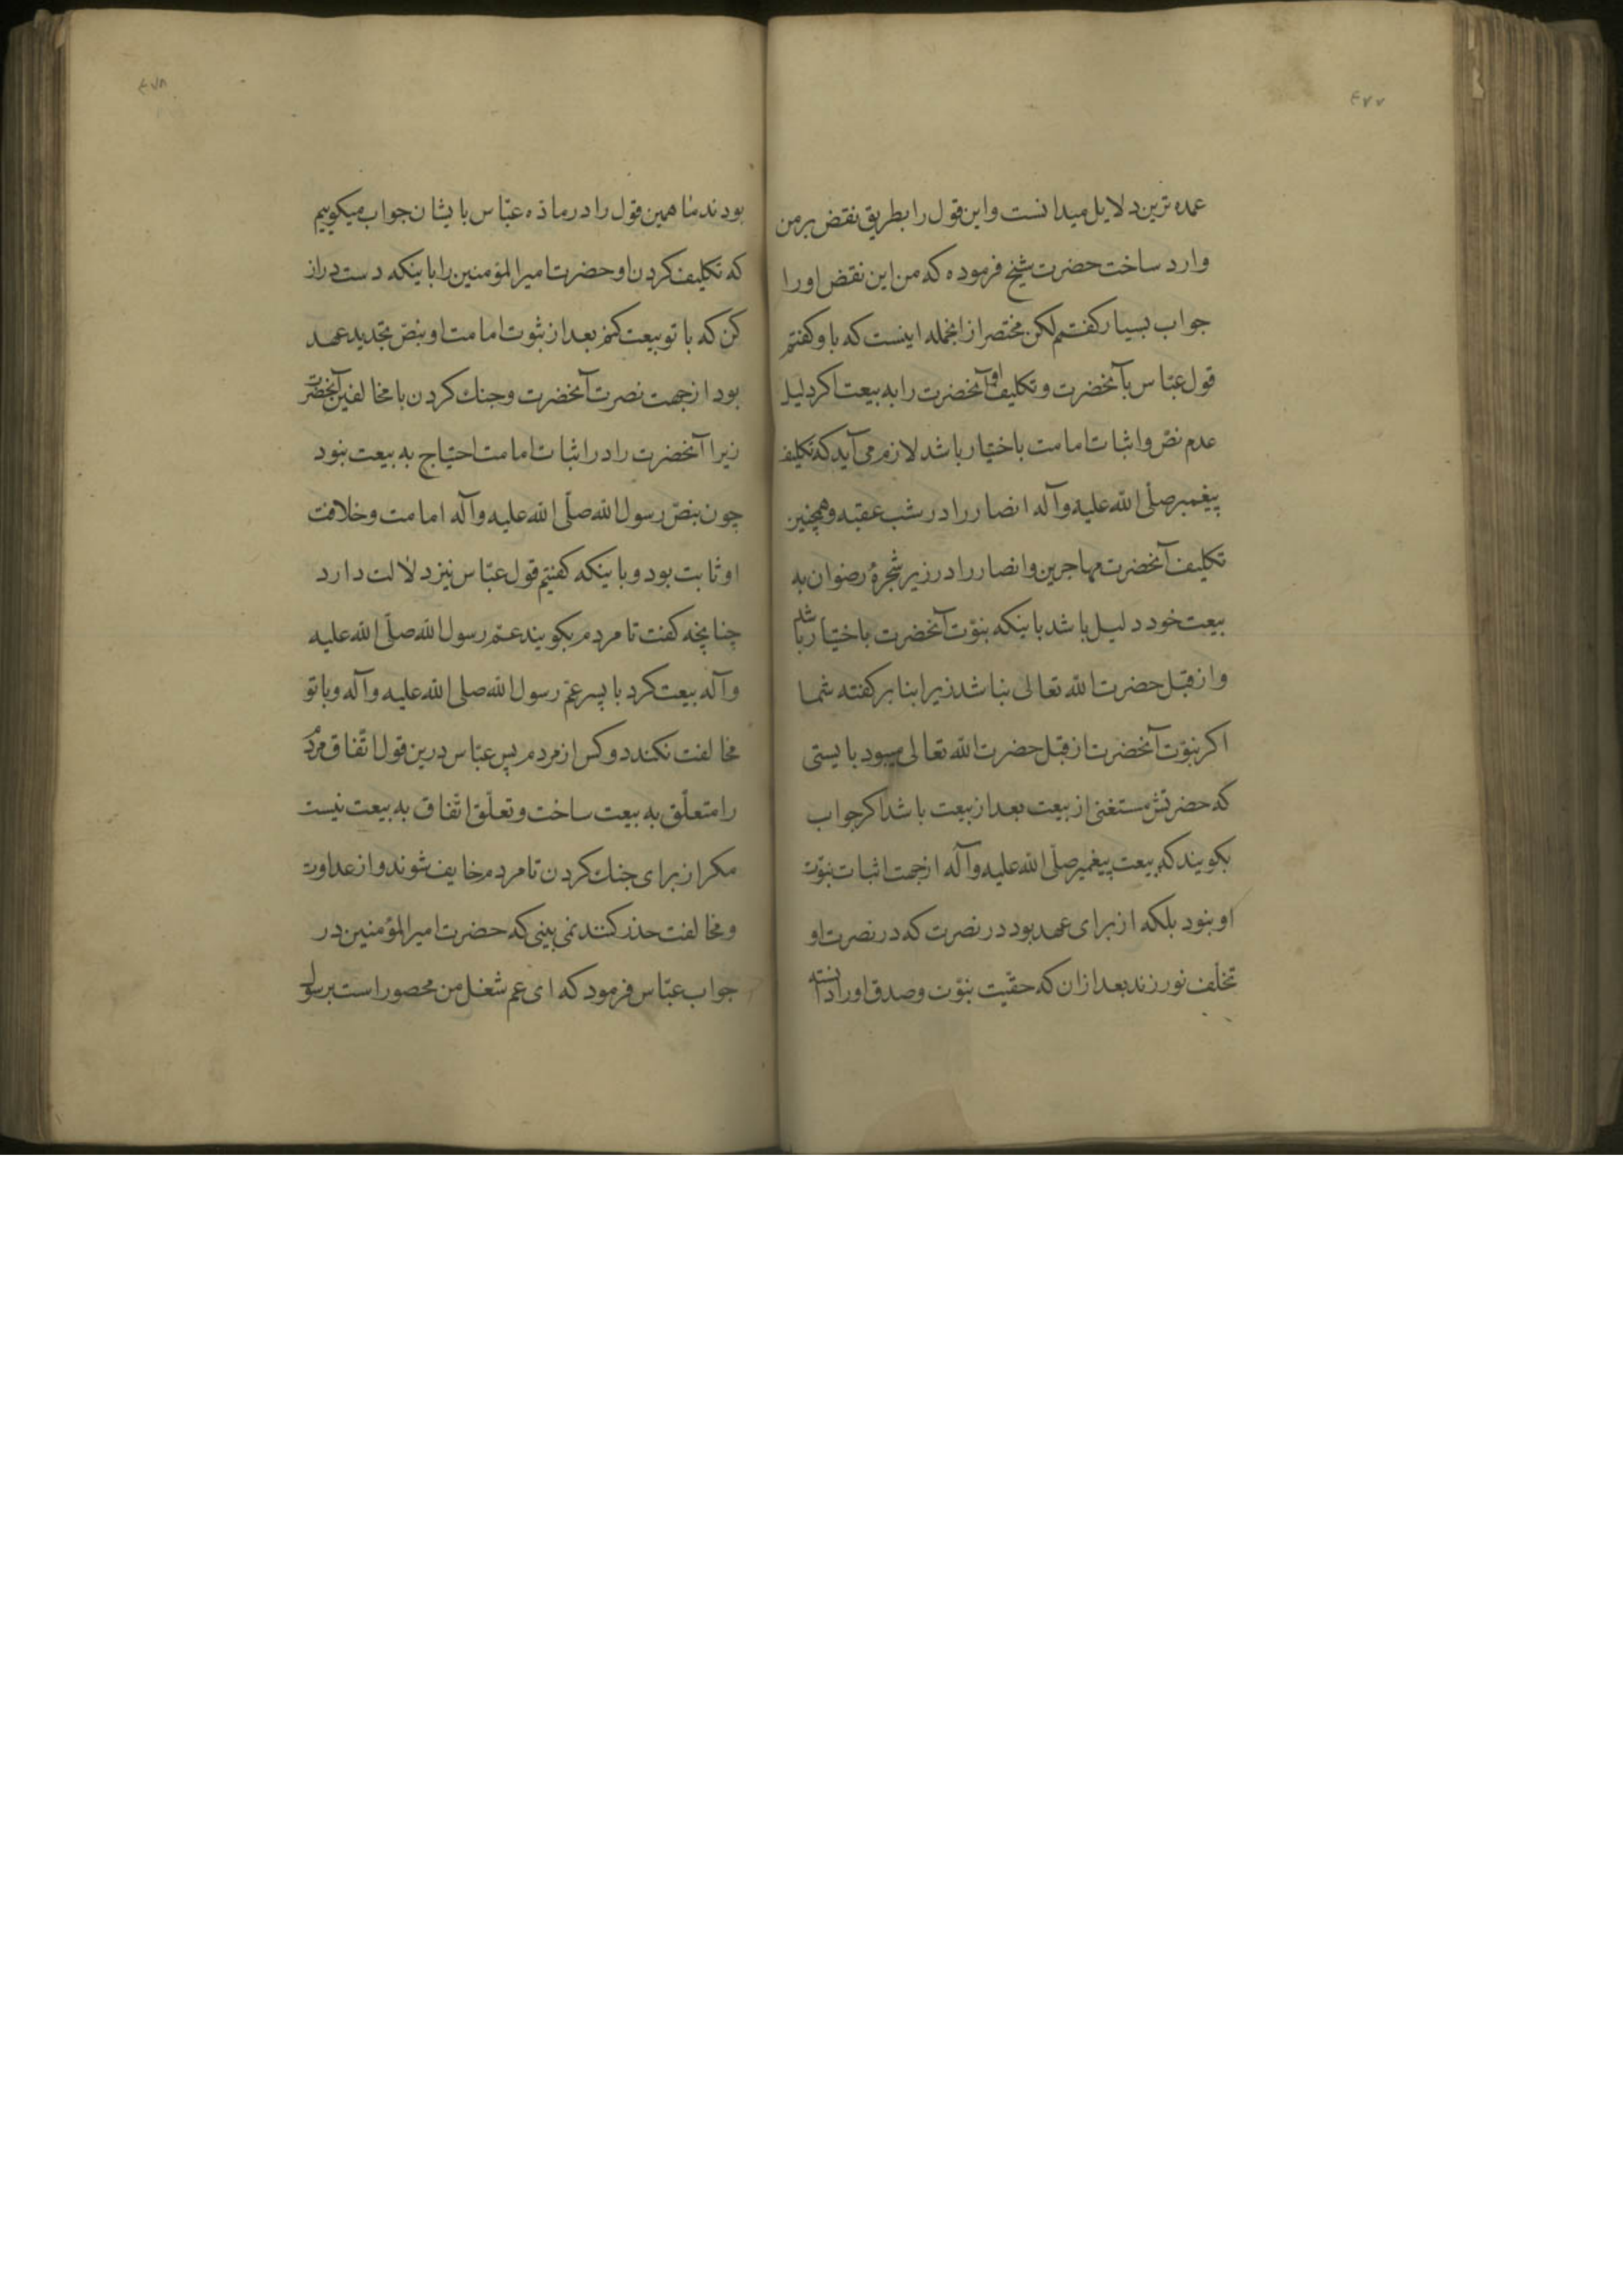 ٤٧٧
عمده ترین دلایل میدانست و این قول را بطریق نقض بر من
وارد ساخت حضرت شیخ فرموده که من این نقض او را
جواب بسیار کفتم لکن مختصر از انجمله اینست که با و کفتم
قول عبّاس بآنحضرت و تکلیف او آنحضرت را به بیعت اکر دلیل
عدم نصّ و اثبات امامت باختیار باشد لازم می آید که تکلیف
پیغمبر صلّی الله علیه وآله انصار را در شب عقبه و همچنین
تکلیف آنحضرت مهاجرین و انصار را در زیر شجرهٔ رضوان به
بیعت خود دلیل باشد باینکه نبوّت آنحضرت باختیار باشد
و از قبل حضرت الله تعالی نباشد زیرا بنا بر کفته شما
اکر نبوّت آنحضرت از قبل حضرت الله تعالی میبود بایستی
که حضرتش مستغنی از بیعت بعد از بیعت باشد اکر جواب
بکویند که بیعت پیغمبر صلّی الله علیه وآله از جهت اثبات نبوّت
او نبود بلکه از برای عهد بود در نصرت که در نصرت او
تخلّف نورزند بعد از ان که حقّیت نبوّت و صدق او را دانسته
٤٧٨
بودند ما همین قول را در ماده عبّاس بایشان جواب میکوییم
که تکلیف کردن او حضرت امیرالمؤمنین را باینکه دست دراز
کن که با تو بیعت کنم بعد از ثبوت امامت او بنصّ تجدید عهد
بود از جهت نصرت آنحضرت و جنك کردن با مخالفین آنحضرت
زیرا آنحضرت را در اثبات امامت احتیاج به بیعت نبود
چون بنصّ رسول الله صلّی الله علیه وآله امامت و خلافت
او ثابت بود و باینکه کفتیم قول عبّاس نیز دلالت دارد
چنانچه کفت تا مردم بکویند عمّ رسول الله صلّی الله علیه
وآله بیعت کرد با پسر عمّ رسول الله صلی الله علیه وآله و با تو
مخالفت نکنند دو کس از مردم پس عبّاس درین قول اتّفاق مردم
را متعلّق به بیعت ساخت و تعلّق اتّفاق به بیعت نیست
مکر از برای جنك کردن تا مردم خایف شوند و از عداوت
و مخالفت حذر کنند نمی بینی که حضرت امیرالمؤمنین در
جواب عبّاس فرمود که ای عم شغل من محصور است برسول